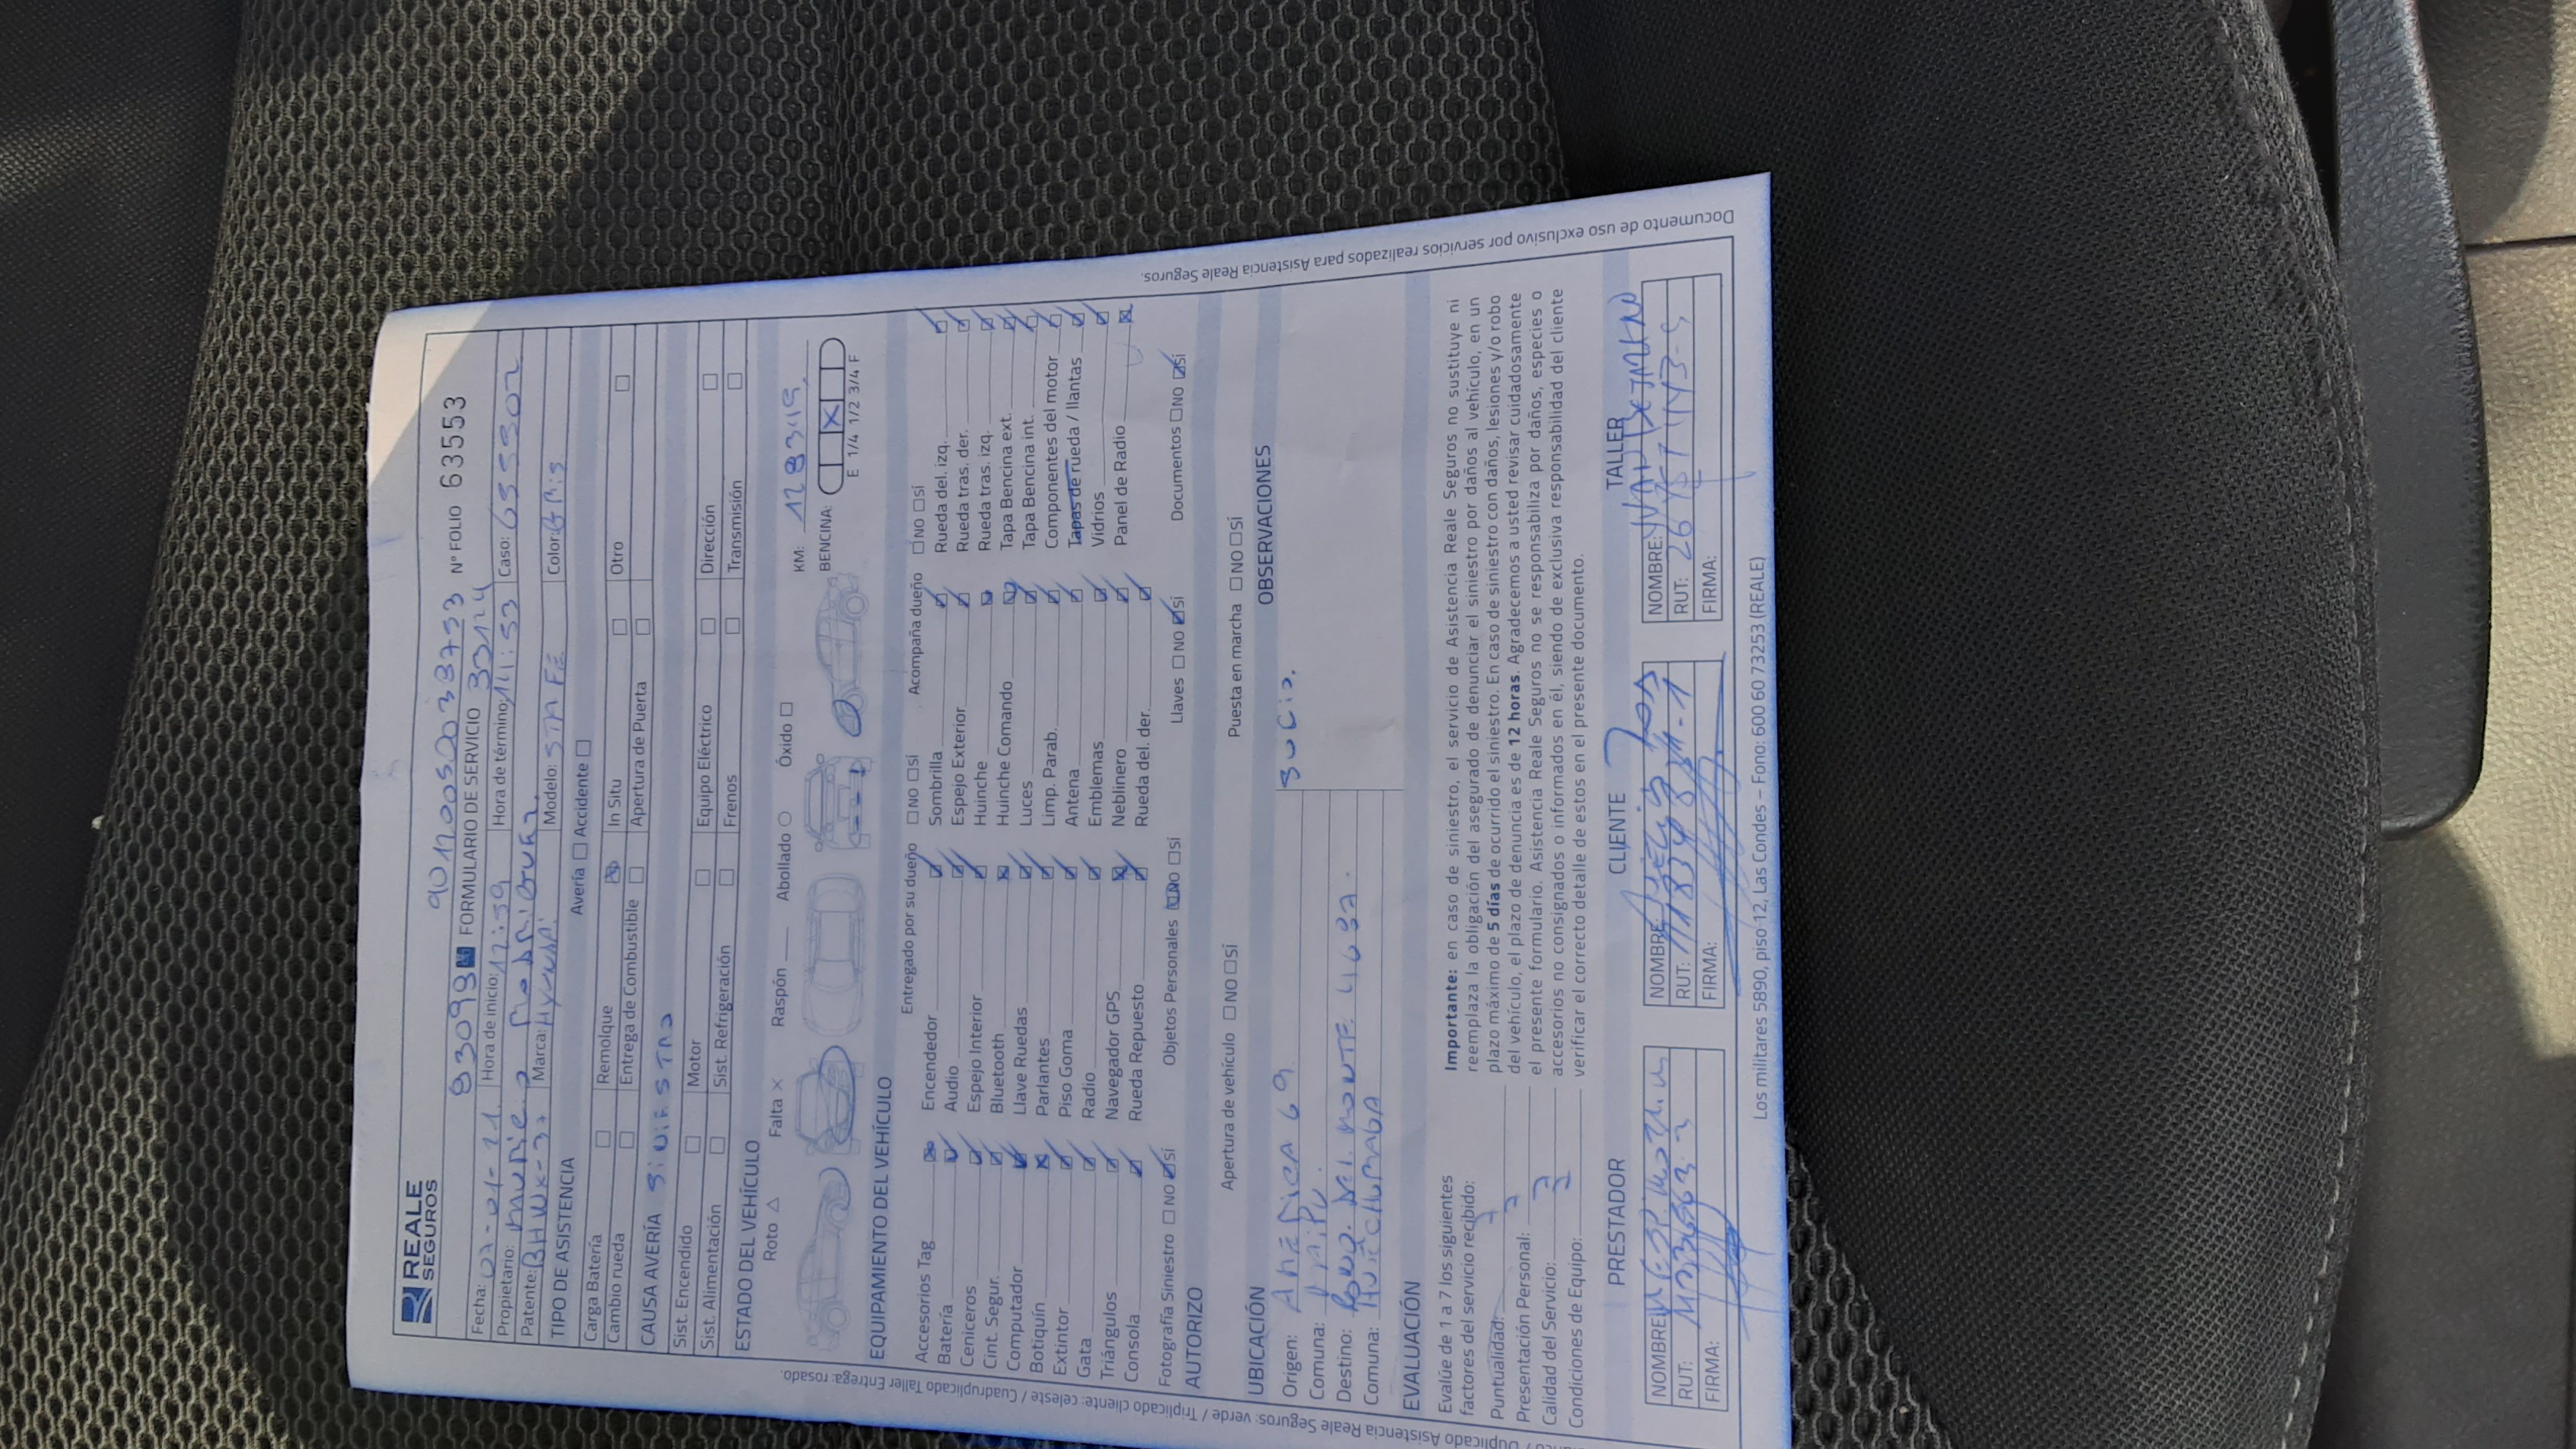 REALE
SEGUROS
FORMULARIO DE SERVICIO
Nº FOLIO 63553
Fecha: 07-01-21 Hora de inicio: Hora de término: 11:53 Caso:
Propietario:
Patente: BHWX-37 Marca: Hyundai Modelo: STA FÉ Color: Gris
TIPO DE ASISTENCIA Avería □ Accidente □
Carga Batería □ Remolque In Situ □ Otro □
Cambio rueda □ Entrega de Combustible □ Apertura de Puerta □
CAUSA AVERÍA SiniESTRO
Sist. Encendido □ Motor □ Equipo Eléctrico □ Dirección □
Sist. Alimentación □ Sist. Refrigeración □ Frenos □ Transmisión □
ESTADO DEL VEHÍCULO
Roto △ Falta × Raspón __ Abollado ○ Óxido □ KM: 128319
BENCINA:
E 1/4 1/2 3/4 F
EQUIPAMIENTO DEL VEHÍCULO Entregado por su dueño □ NO □ SÍ Acompaña dueño □ NO □ SÍ
Accesorios Tag Encendedor Sombrilla Rueda del. izq.
Batería Audio Espejo Exterior Rueda tras. der.
Ceniceros Espejo Interior Huinche Rueda tras. izq.
Cint. Segur. Bluetooth Huinche Comando Tapa Bencina ext.
Computador Llave Ruedas Luces Tapa Bencina int.
Botiquín Parlantes Limp. Parab. Componentes del motor
Extintor Piso Goma Antena Tapas de rueda / llantas
Gata Radio Emblemas Vidrios
Triángulos Navegador GPS Neblinero Panel de Radio
Consola Rueda Repuesto Rueda del. der.
Fotografía Siniestro □ NO SÍ Objetos Personales NO □ SÍ Llaves □ NO SÍ Documentos □ NO SÍ
AUTORIZO
Apertura de vehículo □ NO □ SÍ Puesta en marcha □ NO □ SÍ
UBICACIÓN OBSERVACIONES
Origen: America 69 SUCIO.
Comuna: MAIPU.
Destino:
Comuna: HUECHURABA
EVALUACIÓN
Evalúe de 1 a 7 los siguientes
factores del servicio recibido:
Puntualidad: 7
Presentación Personal: 7
Calidad del Servicio: 7
Condiciones de Equipo: 7
Importante: en caso de siniestro, el servicio de Asistencia Reale Seguros no sustituye ni
reemplaza la obligación del asegurado de denunciar el siniestro por daños al vehículo, en un
plazo máximo de 5 días de ocurrido el siniestro. En caso de siniestro con daños, lesiones y/o robo
del vehículo, el plazo de denuncia es de 12 horas. Agradecemos a usted revisar cuidadosamente
el presente formulario. Asistencia Reale Seguros no se responsabiliza por daños, especies o
accesorios no consignados o informados en él, siendo de exclusiva responsabilidad del cliente
verificar el correcto detalle de estos en el presente documento.
PRESTADOR CLIENTE TALLER
NOMBRE: NOMBRE: NOMBRE:
RUT: RUT: RUT:
FIRMA: FIRMA: FIRMA:
Los militares 5890, piso 12, Las Condes – Fono: 600 60 73253 (REALE)
Documento de uso exclusivo por servicios realizados para Asistencia Reale Seguros.
/ Duplicado Asistencia Reale Seguros: verde / Triplicado cliente: celeste / Cuadruplicado Taller Entrega: rosado.